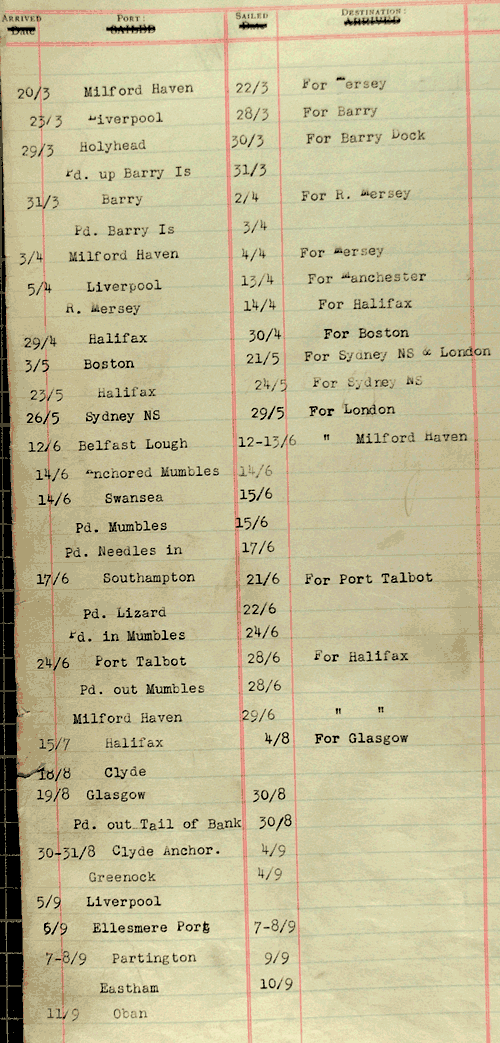 ARRIVED PORT: SAILED DESTINATION:
Date SAILED Date ARRIVED
20/3 Milford Haven 22/3 For Mersey
23/3 Liverpool 28/3 For Barry
29/3 Holyhead 30/3 For Barry Dock
Pd. up Barry Is 31/3
31/3 Barry 2/4 For R. Mersey
Pd. Barry Is 3/4
3/4 Milford Haven 4/4 For Mersey
5/4 Liverpool 13/4 For Manchester
R. Mersey 14/4 For Halifax
29/4 Halifax 30/4 For Boston
3/5 Boston 21/5 For Sydney NS & London
23/5 Halifax 24/5 For Sydney NS
26/5 Sydney NS 29/5 For London
12/6 Belfast Lough 12-13/6 " Milford Haven
14/6 Anchored Mumbles 14/6
14/6 Swansea 15/6
Pd. Mumbles 15/6
Pd. Needles in 17/6
17/6 Southampton 21/6 For Port Talbot
Pd. Lizard 22/6
Pd. in Mumbles 24/6
24/6 Port Talbot 28/6 For Halifax
Pd. out Mumbles 28/6
Milford Haven 29/6 " "
15/7 Halifax 4/8 For Glasgow
18/8 Clyde
19/8 Glasgow 30/8
Pd. out Tail of Bank 30/8
30-31/8 Clyde Anchor. 4/9
Greenock 4/9
5/9 Liverpool
6/9 Ellesmere Port 7-8/9
7-8/9 Partington 9/9
Eastham 10/9
11/9 Oban